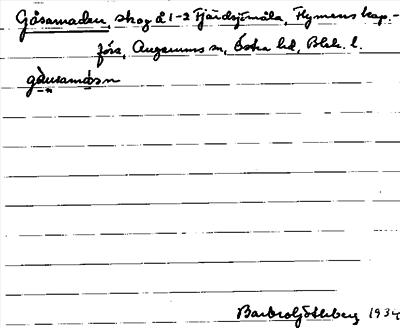 Gåsamaden, skog å 1-2 Fjärdsjömåla, Flymens kap.-
förs, Augerums sn, Östra hd, Blek. l.
Barbro Götleberg 1934